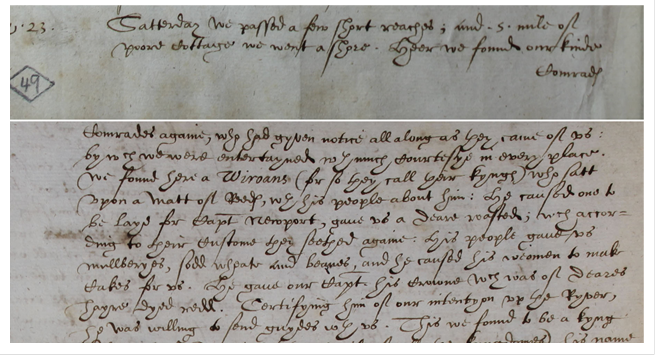 23.
Satterday we passed a few short reaches; and .5. mile of
poore Cottage we went a shore. Heer we found our kinde
Comrades
49
Comrades againe, who had gyven notice all along as they came of vs:
by wch we were entertayned wth much Courtesye in every place.
We found here a Wiroans (for so they call their kynges) who satt
vpon a matt of Reedes, wth his people about him: He caused one to
be layd for Capt Newport, gaue vs a Deare roasted; wch accor-
ding to their Custome they seethed againe: His people gaue vs
mullberyes, sodd wheate and beanes, and he caused his women to make
Cakes for vs. He gaue our Capt his Crowne wch was of Deares
hayre, Dyed redd. Certifying him of our intentyon vp the Ryver,
he was willing to send guydes wth vs. This we found to be a kyng
his name